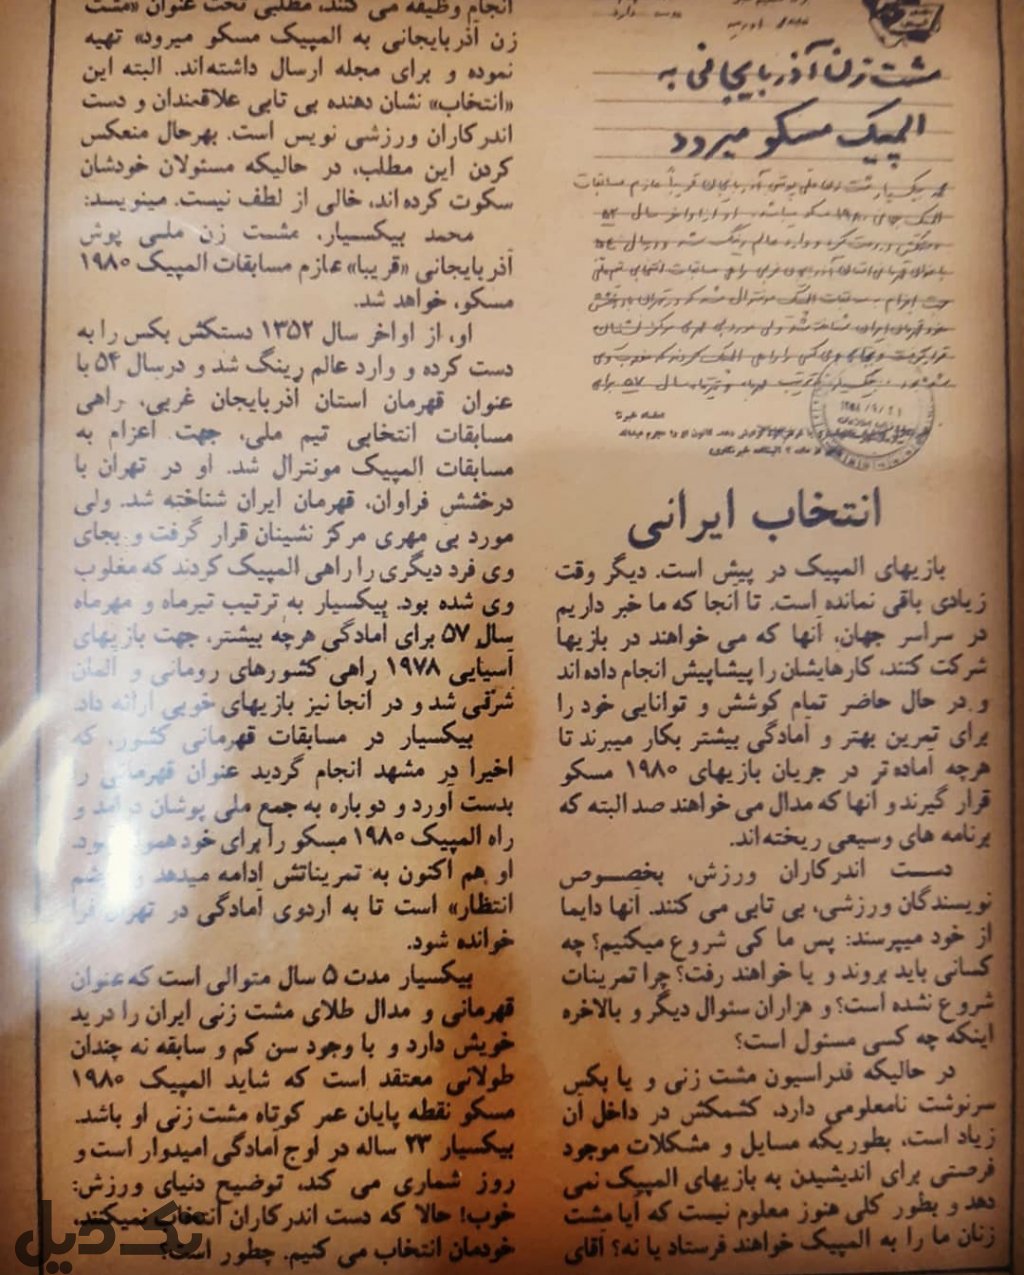 مشت زن آذربایجانی به
المپیک مسکو میرود
انتخاب ایرانی
بازیهای المپیک در پیش است. دیگر وقت
زیادی باقی نمانده است. تا آنجا که ما خبر داریم
در سراسر جهان، آنها که می خواهند در بازیها
شرکت کنند، کارهایشان را پیشاپیش انجام داده اند
و در حال حاضر تمام کوشش و توانایی خود را
برای تمرین بهتر و آمادگی بیشتر بکار میبرند تا
هرچه آماده تر در جریان بازیهای ۱۹۸۰ مسکو
قرار گیرند و آنها که مدال می خواهند صد البته که
برنامه های وسیعی ریخته اند.
دست اندرکاران ورزش، بخصوص
نویسندگان ورزشی، بی تابی می کنند. آنها دایما
از خود میپرسند: پس ما کی شروع میکنیم؟ چه
کسانی باید بروند و یا خواهند رفت؟ چرا تمرینات
شروع نشده است؟ و هزاران سئوال دیگر و بالاخره
اینکه چه کسی مسئول است؟
در حالیکه فدراسیون مشت زنی و یا بکس
سرنوشت نامعلومی دارد، کشمکش در داخل آن
زیاد است، بطوریکه مسایل و مشکلات موجود
فرصتی برای اندیشیدن به بازیهای المپیک نمی
دهد و بطور کلی هنوز معلوم نیست که آیا مشت
زنان ما را به المپیک خواهند فرستاد یا نه؟ آقای
انجام وظیفه می کنند، مطلبی تحت عنوان «مشت
زن آذربایجانی به المپیک مسکو میرود» تهیه
نموده و برای مجله ارسال داشته اند. البته این
«انتخاب» نشان دهنده بی تابی علاقمندان و دست
اندرکاران ورزشی نویس است. بهرحال منعکس
کردن این مطلب، در حالیکه مسئولان خودشان
سکوت کرده اند، خالی از لطف نیست. مینویسد:
محمد بیکسیار، مشت زن ملی پوش
آذربایجانی «قریبا» عازم مسابقات المپیک ۱۹۸۰
مسکو، خواهد شد.
او، از اواخر سال ۱۳۵۲ دستکش بکس را به
دست کرده و وارد عالم رینگ شد و درسال ۵۴ با
عنوان قهرمان استان آذربایجان غربی، راهی
مسابقات انتخابی تیم ملی، جهت اعزام به
مسابقات المپیک مونترال شد. او در تهران با
درخشش فراوان، قهرمان ایران شناخته شد. ولی
مورد بی مهری مرکز نشینان قرار گرفت و بجای
وی فرد دیگری را راهی المپیک کردند که مغلوب
وی شده بود. بیکسیار به ترتیب تیرماه و مهرماه
سال ۵۷ برای آمادگی هرچه بیشتر، جهت بازیهای
آسیایی ۱۹۷۸ راهی کشورهای رومانی و آلمان
شرقی شد و در آنجا نیز بازیهای خوبی ارائه داد.
بیکسیار در مسابقات قهرمانی کشور، که
اخیرا در مشهد انجام گردید عنوان قهرمانی را
بدست آورد و دوباره به جمع ملی پوشان درآمد و
راه المپیک ۱۹۸۰ مسکو را برای خود هموار نمود.
او هم اکنون به تمریناتش ادامه میدهد و چشم
انتظار» است تا به اردوی آمادگی در تهران فرا
خوانده شود.
بیکسیار مدت ۵ سال متوالی است که عنوان
قهرمانی و مدال طلای مشت زنی ایران را در ید
خویش دارد و با وجود سن کم و سابقه نه چندان
طولانی معتقد است که شاید المپیک ۱۹۸۰
مسکو نقطه پایان عمر کوتاه مشت زنی او باشد.
بیکسیار ۲۳ ساله در اوج آمادگی امیدوار است و
روز شماری می کند، توضیح دنیای ورزش:
خوب! حالا که دست اندرکاران انتخاب نمیکنند،
خودمان انتخاب می کنیم. چطور است؟
یک دیل